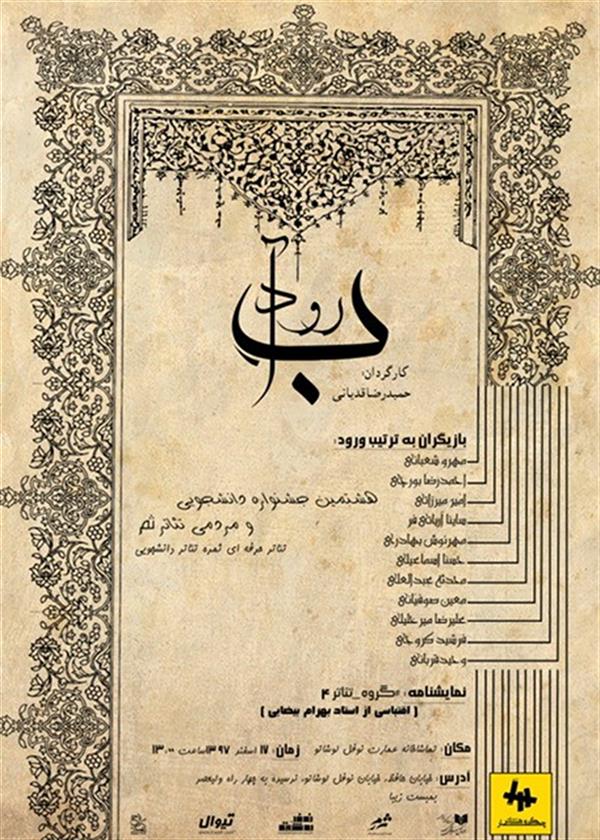 آب
رود
کارگردان:
حمیدرضا قدبانی
بازیگران به ترتیب ورود:
مهرو شعبانی
احمدرضا پورجی
امیر میرزائی
ساینا آریائی فر
مهرنوش بهادری
حسنا اسماعیلی
محدثه عبدالعلی
معین صوفیانی
علیرضا میر خلیلی
فرشید کروجی
وحید قربانی
هشتمین جشنواره دانشجویی
و مردمی تئاتر ثمر
تئاتر حرفه ای ثمره تئاتر دانشجویی
نمایشنامه: #گروه_تئاتر ۴
( اقتباسی از استاد بهرام بیضایی )
مکان: تماشاخانه عمارت نوفل لوشاتو زمان: ۱۷ اسفند ۱۳۹۷ ساعت ۱۳:۰۰
آدرس: خیابان حافظ، خیابان نوفل لوشاتو، نرسیده به چهار راه ولیعصر
بمبست زیبا
تیوال
ثمر